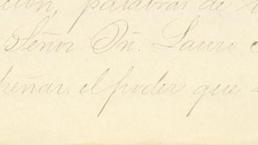 palabras de
Señor Dn. Lauro
peñar el poder que